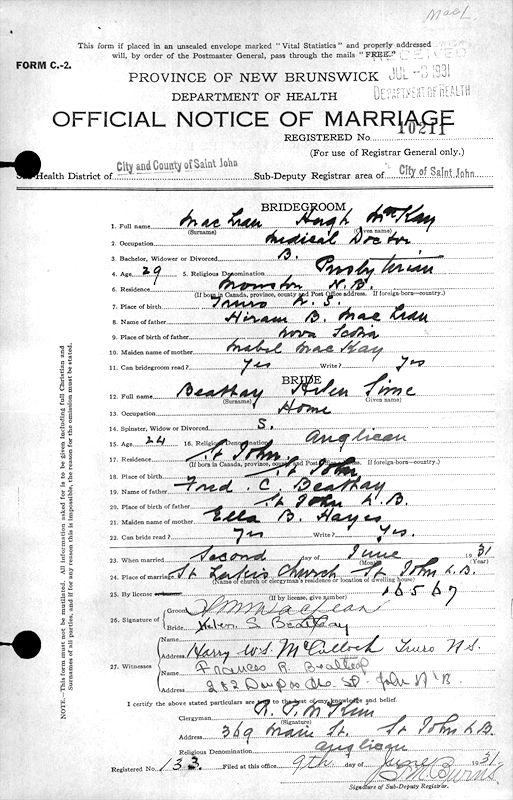 MacL.
This form if placed in an unsealed envelope marked "Vital Statistics" and properly addressed
will, by order of the Postmaster General, pass through the mails "FREE."
FORM C.-2.
RECEIVED
JUL -8 1931
DEPARTMENT OF HEALTH
PROVINCE OF NEW BRUNSWICK
DEPARTMENT OF HEALTH
OFFICIAL NOTICE OF MARRIAGE
REGISTERED No. 10211
(For use of Registrar General only.)
Sub-Health District of City and County of Saint John Sub-Deputy Registrar area of City of Saint John
BRIDEGROOM
1. Full name MacLean Hugh McKay
(Surname) (Given name)
2. Occupation Medical Doctor
3. Bachelor, Widower or Divorced B.
4. Age 29 5. Religious Denomination Presbyterian
6. Residence Moncton N.B.
(If born in Canada, province, county and Post Office address. If foreign-born—country.)
7. Place of birth Truro N.S.
8. Name of father Hiram B. MacLean
9. Place of birth of father Nova Scotia
10. Maiden name of mother Mabel MacKay
11. Can bridegroom read? Yes Write? Yes
BRIDE
12. Full name Beattay Helen Sime
(Surname) (Given name)
13. Occupation Home
14. Spinster, Widow or Divorced S.
15. Age 24 16. Religious Denomination Anglican
17. Residence St John
(If born in Canada, province, county and Post Office address. If foreign-born—country.)
18. Place of birth St John
19. Name of father Fred. C. Beattay
20. Place of birth of father St John N.B.
21. Maiden name of mother Ella B. Hayes
22. Can bride read? Yes Write? Yes.
23. When married Second day of June 1931
(Month) (Year)
24. Place of marriage St Lukes Church St John N.B.
(Name of church or clergyman's residence or location of dwelling house)
25. By license 16567
(If by license, give number)
26. Signature of Groom H M MacLean
Bride Helen S. Beattay
27. Witnesses Name Harry W.S. McCulloch
Address Truro N.S.
Name Frances R. Beatteay
Address St. John N.B.
I certify the above stated particulars are true to the best of my knowledge and belief.
Clergyman R. P. McKim
(Signature)
Address 369 Main St. St John N.B.
Religious Denomination Anglican
Registered No. 133 Filed at this office 9th day of June 1931
J. M. Burns
Signature of Sub-Deputy Registrar.
NOTE.—This form must not be mutilated. All information asked for is to be given including full Christian and
Surnames of all parties, and if for any reason this is impossible, the reason for the omission must be stated.